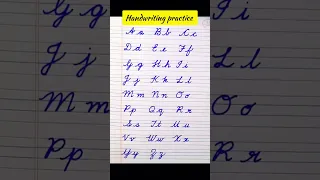 Handwriting practice
A a B b C c
D d E e F f
G g H h I i
J j K k L l
M m N n O o
P p Q q R r
S s T t U u
V v W w X x
Y y Z z
G g
I i
J j
L l
M m
O o
P p
R r